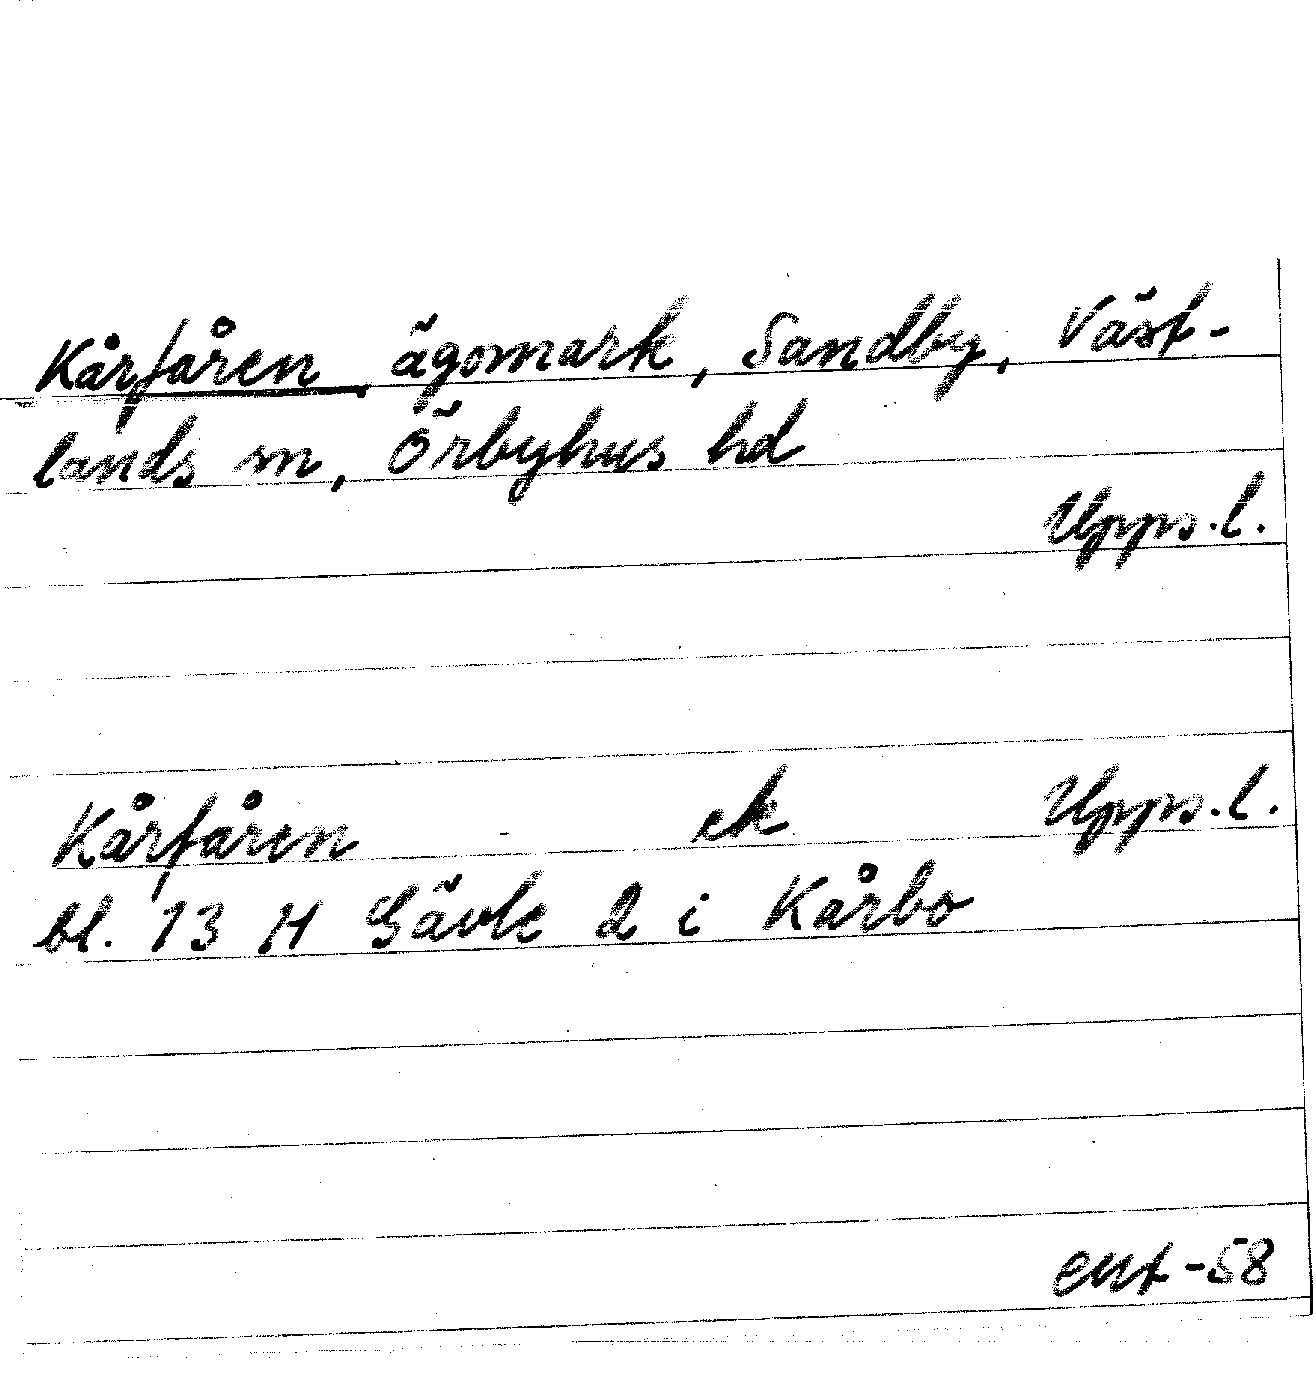 Kårfåren, ägomark, Sandby, Väst-
lands sn, Örbyhus hd
Upps.l.
Kårfåren ek Upps.l.
bl. 13 H Gävle 2 i Kårbo
ent -58